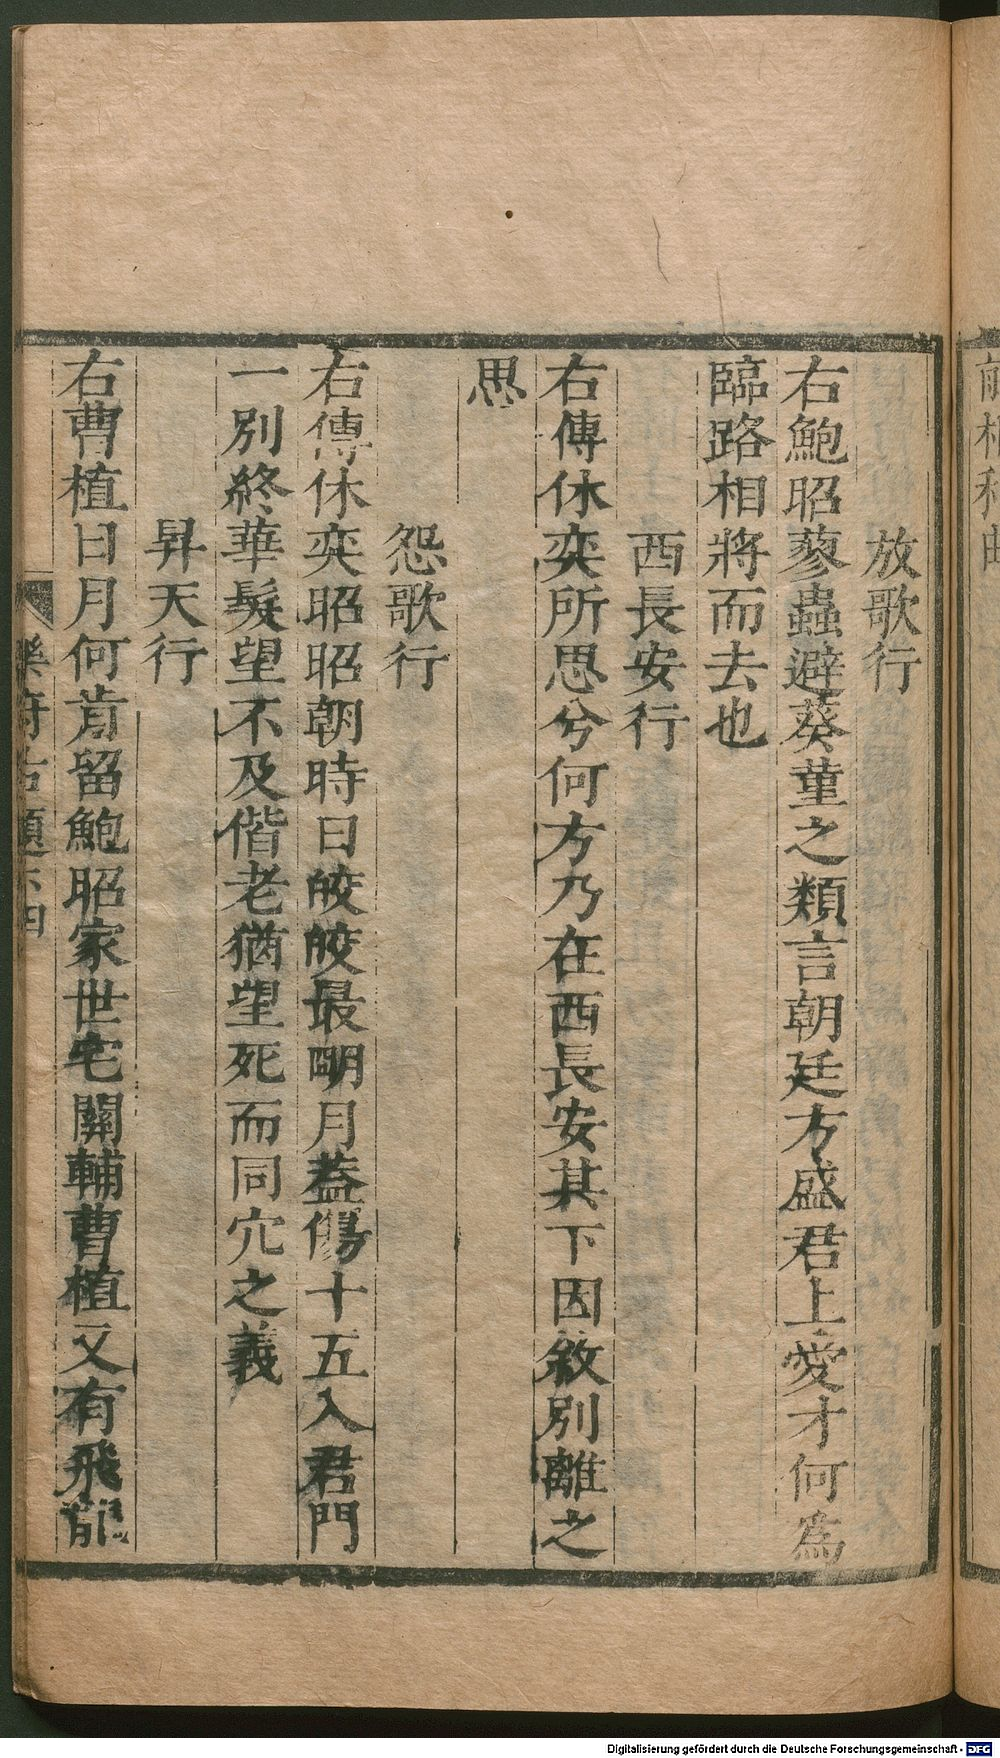 放歌行
右鮑昭蓼蟲避葵堇之類言朝廷方盛君上愛才何為
臨路相將而去也
西長安行
右傳休奕所思兮何方乃在西長安其下因敘別離之
思
怨歌行
右傳休奕昭昭朝時日皎皎最明月蓋傷十五入君門
一別終華髮望不及偕老猶望死而同穴之義
昇天行
右曹植日月何肯留鮑昭家世宅關輔曹植又有飛龍
樂府古題 四
Digitalisierung gefördert durch die Deutsche Forschungsgemeinschaft - DFG